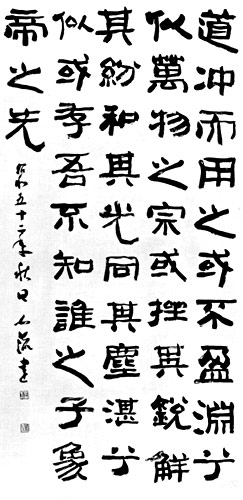 道冲而用之或不盈淵兮
似萬物之宗或挫其銳解
其紛和其光同其塵湛兮
似或存吾不知誰之子象
帝之先
昭和五十二年秋日